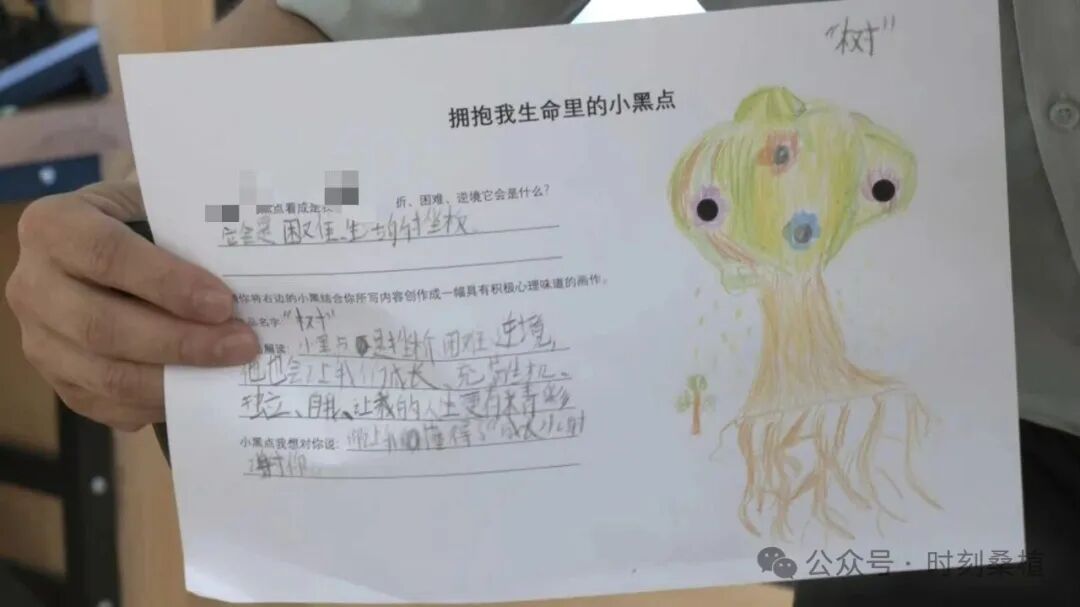 "树"
拥抱我生命里的小黑点
点看成是 折、困难、逆境它会是什么?
它会是困难、生
你将右边的小黑结合你所写内容创作成一幅具有积极心理味道的画作。
品名字"树"
解读:小黑点 是挫折困难 逆境,
他也会让我们成长、充满生机。
独立、自我、让我的人生更有精彩
小黑点我想对你说:
谢谢你
公众号·时刻桑植